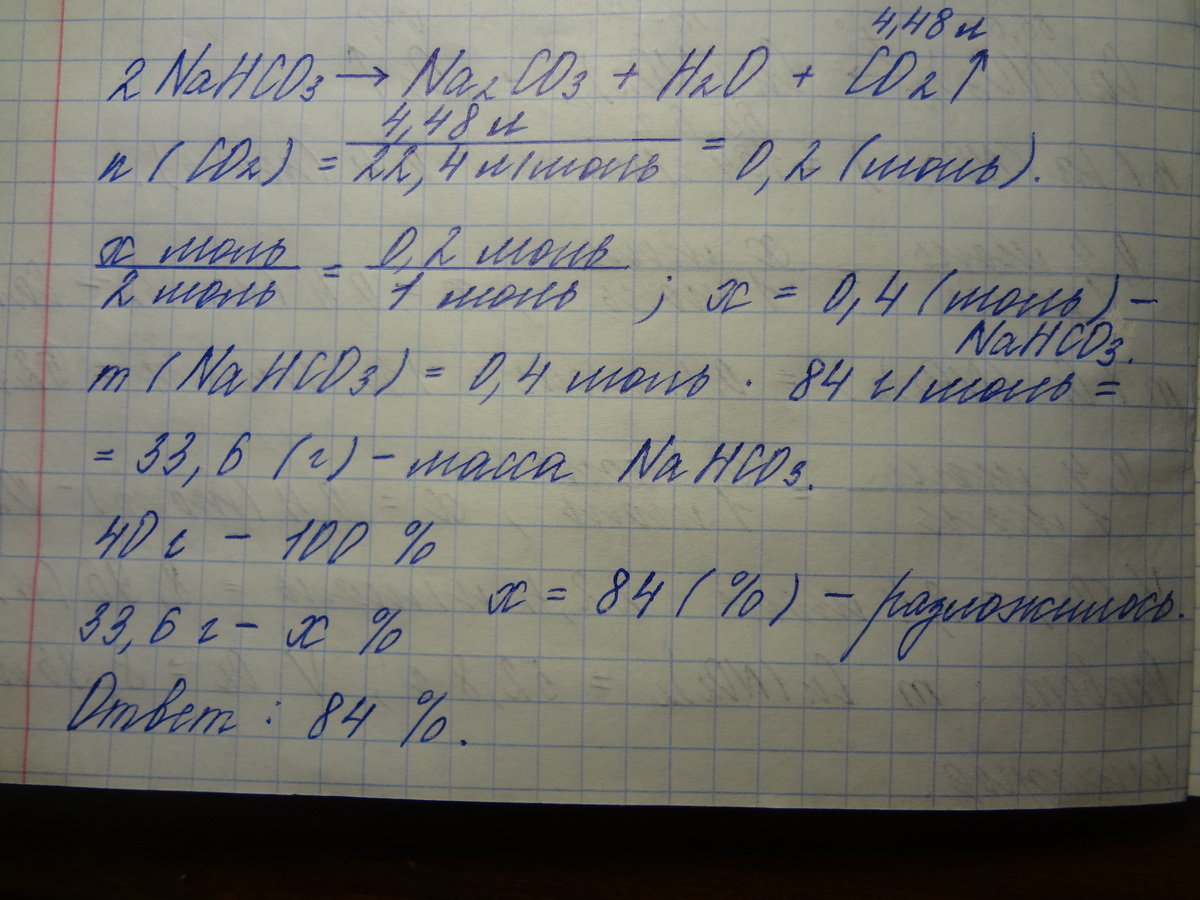 4,48 л
2 NaHCO3 → Na2CO3 + H2O + CO2↑
n (CO2) = 4,48 л / 22,4 л/моль = 0,2 (моль).
x моль / 2 моль = 0,2 моль / 1 моль ; x = 0,4 (моль) –
NaHCO3.
m (NaHCO3) = 0,4 моль · 84 г/моль =
= 33,6 (г) – масса NaHCO3.
40 г – 100 %
33,6 г – x %
x = 84 (%) – разложилось.
Ответ : 84 %.